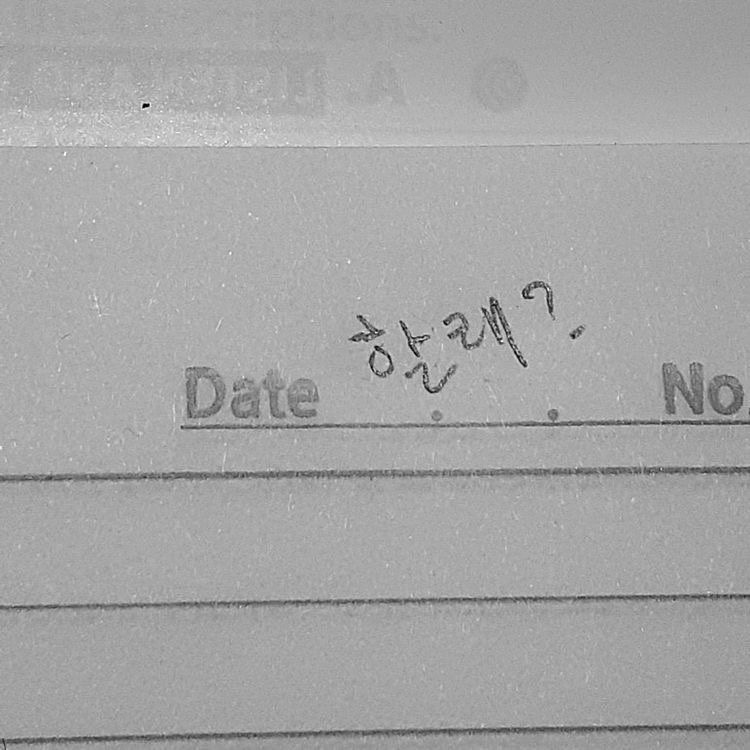 Date 할래?
No